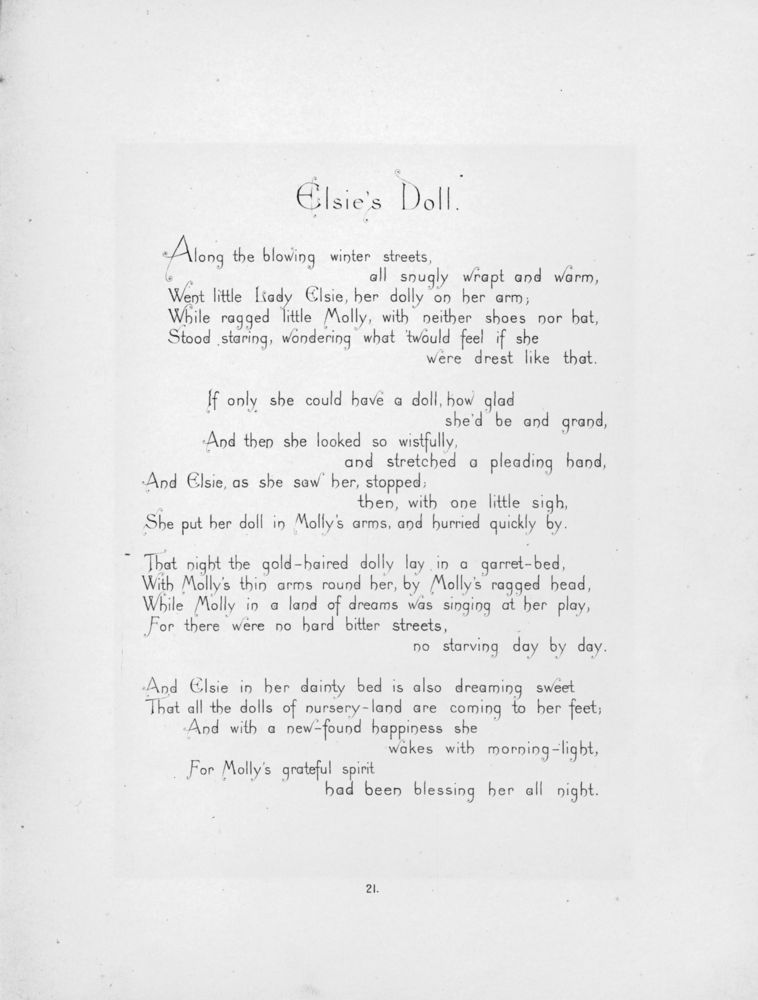 Elsie's Doll.
Along the blowing winter streets,
all snugly wrapt and warm,
Went little Lady Elsie, her dolly on her arm;
While ragged little Molly, with neither shoes nor hat,
Stood staring, wondering what 'twould feel if she
were drest like that.
If only she could have a doll, how glad
she'd be and grand,
And then she looked so wistfully,
and stretched a pleading hand,
And Elsie, as she saw her, stopped;
then, with one little sigh,
She put her doll in Molly's arms, and hurried quickly by.
That night the gold-haired dolly lay in a garret-bed,
With Molly's thin arms round her, by Molly's ragged head,
While Molly in a land of dreams was singing at her play,
For there were no hard bitter streets,
no starving day by day.
And Elsie in her dainty bed is also dreaming sweet
That all the dolls of nursery-land are coming to her feet;
And with a new-found happiness she
wakes with morning-light,
For Molly's grateful spirit
had been blessing her all night.
21.